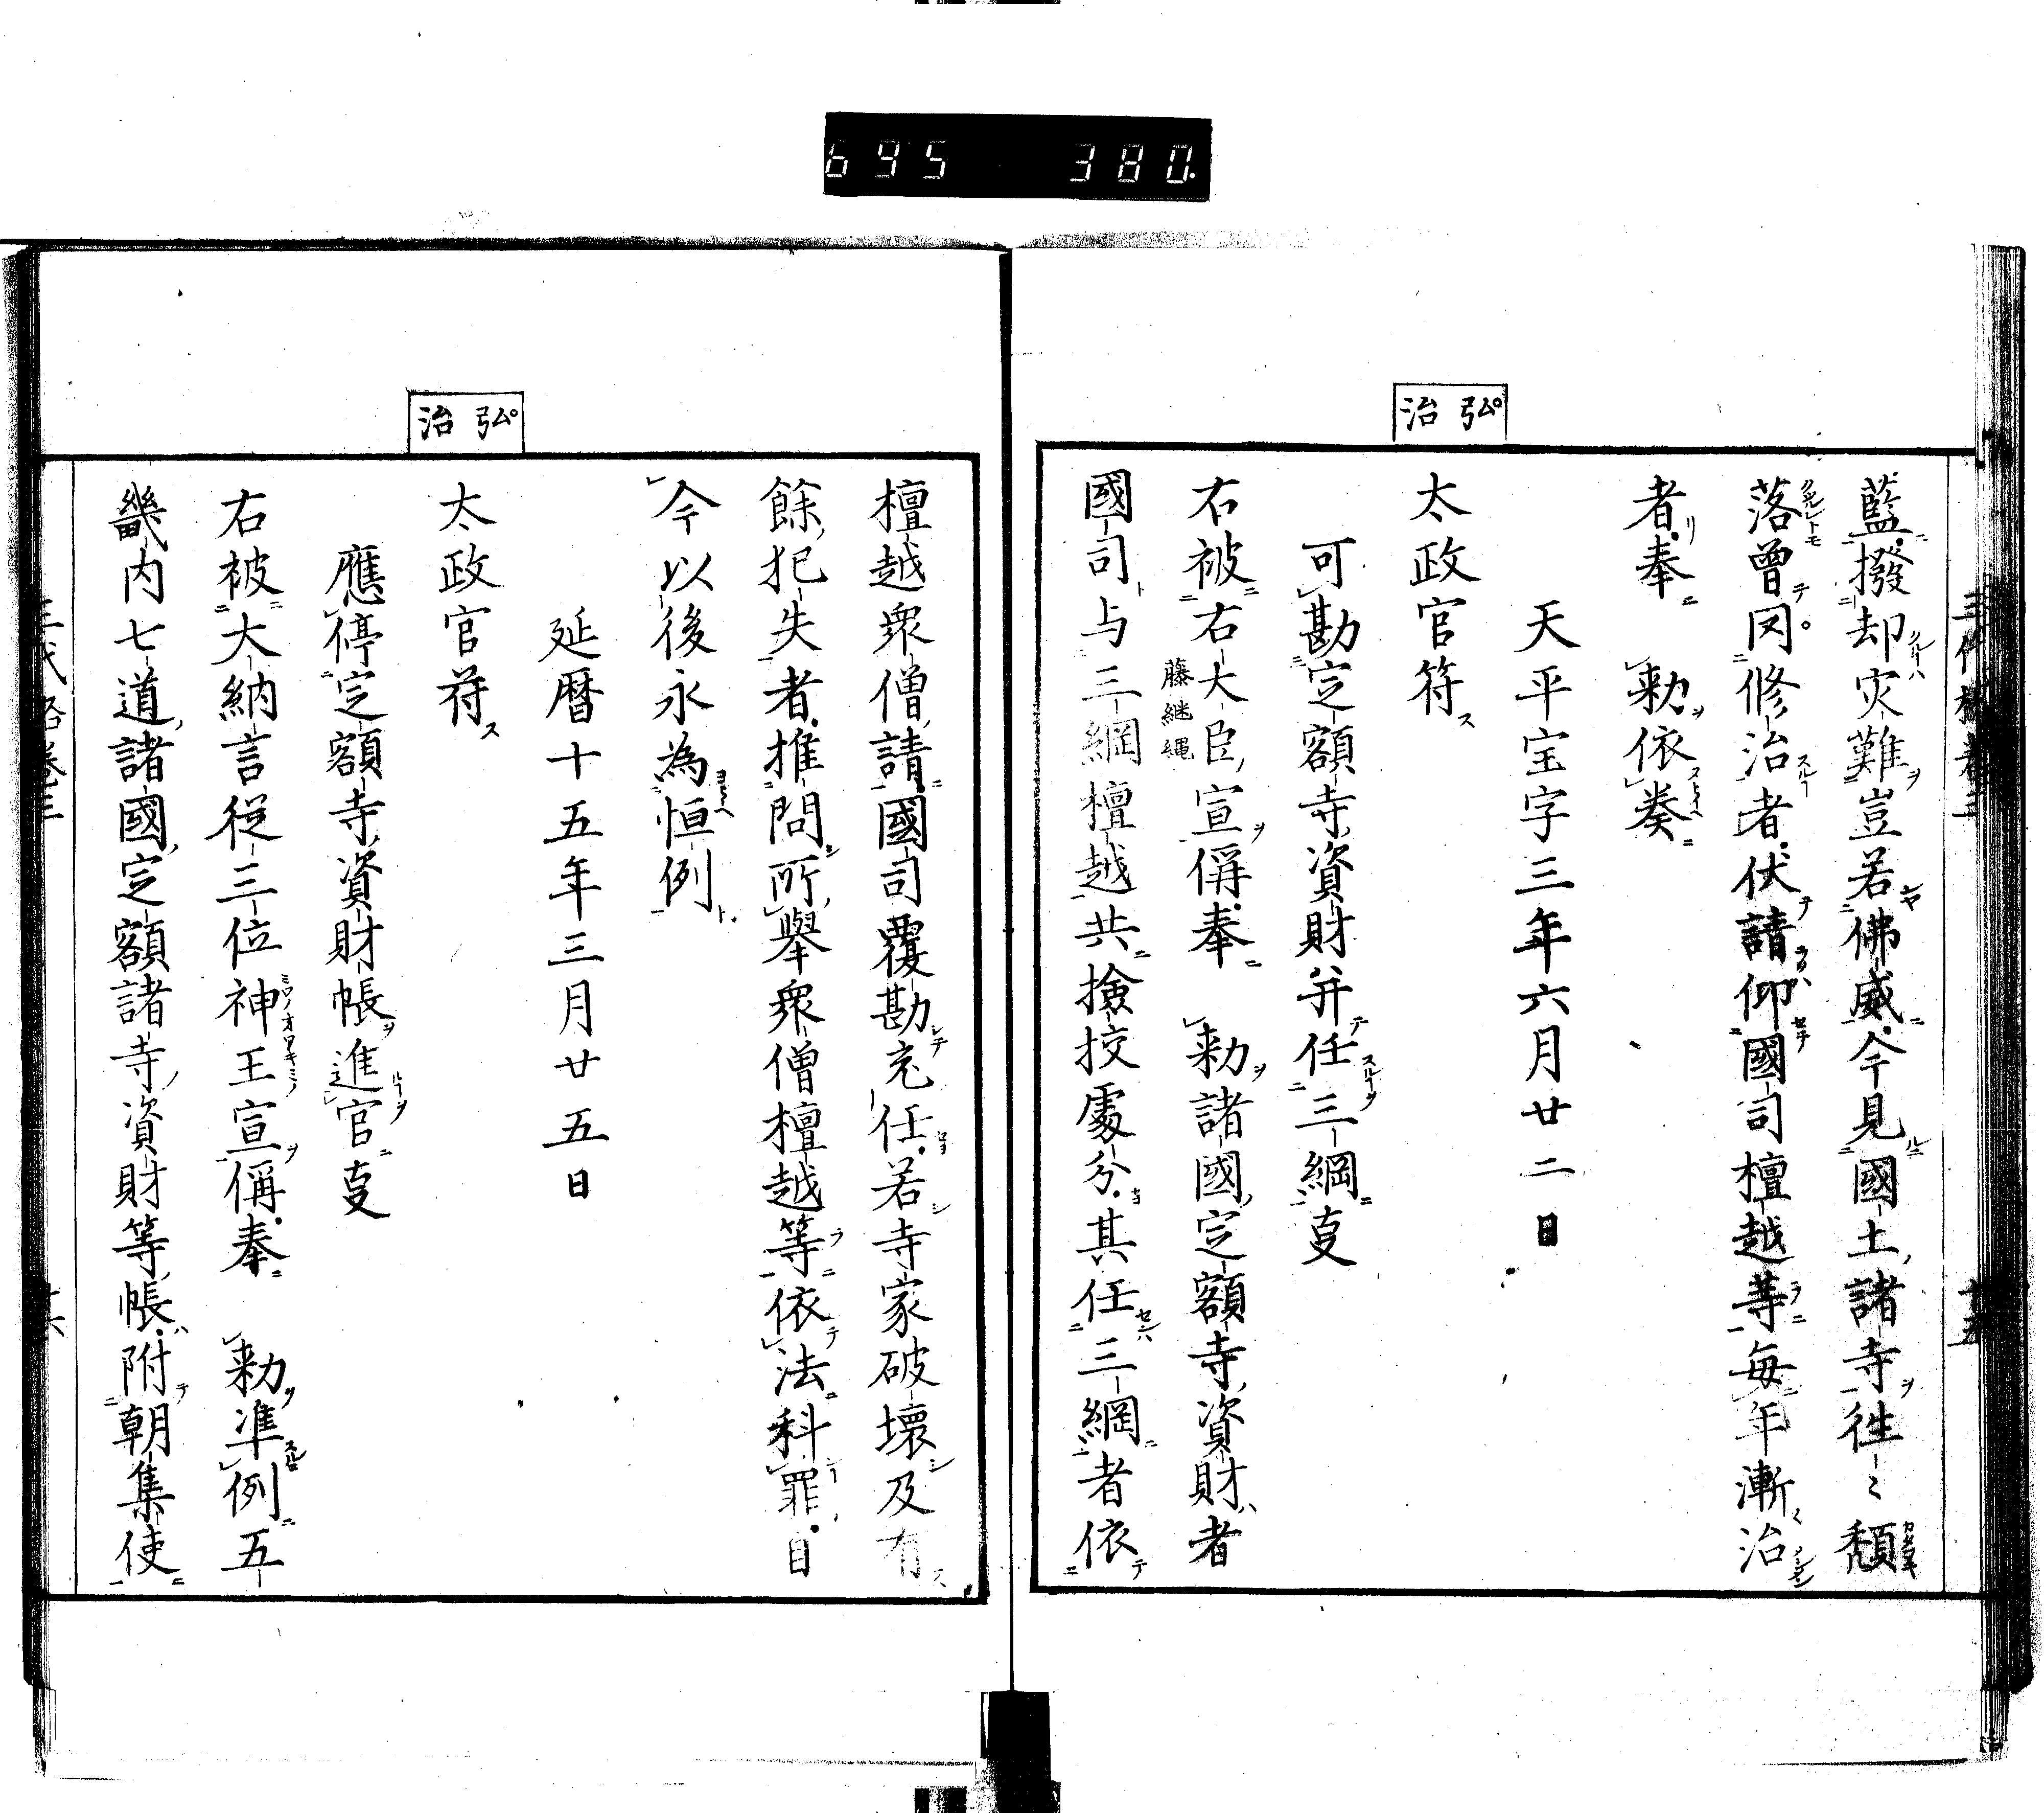 695 380.
弘治
藍撥却灾難豈若佛威今見國土諸寺徃〻頽
落曽罔修治者伏請仰國司檀越等毎年漸治
者奉 勅依奏
天平宝字三年六月廿二日
太政官符
可勘定額寺資財并任三綱事
右被右大臣宣偁奉 勅諸國定額寺資財者
藤継縄
國司与三綱檀越共撿挍處分其任三綱者依
弘治
檀越衆僧請國司覆勘充任若寺家破壊及有
餘犯失者推問所擧衆僧檀越等依法科罪自
今以後永為恒例
延暦十五年三月廿五日
太政官符
應停定額寺資財帳進官事
右被大納言従三位神王宣偁奉 勅准例五
畿内七道諸國定額諸寺資財等帳附朝集使